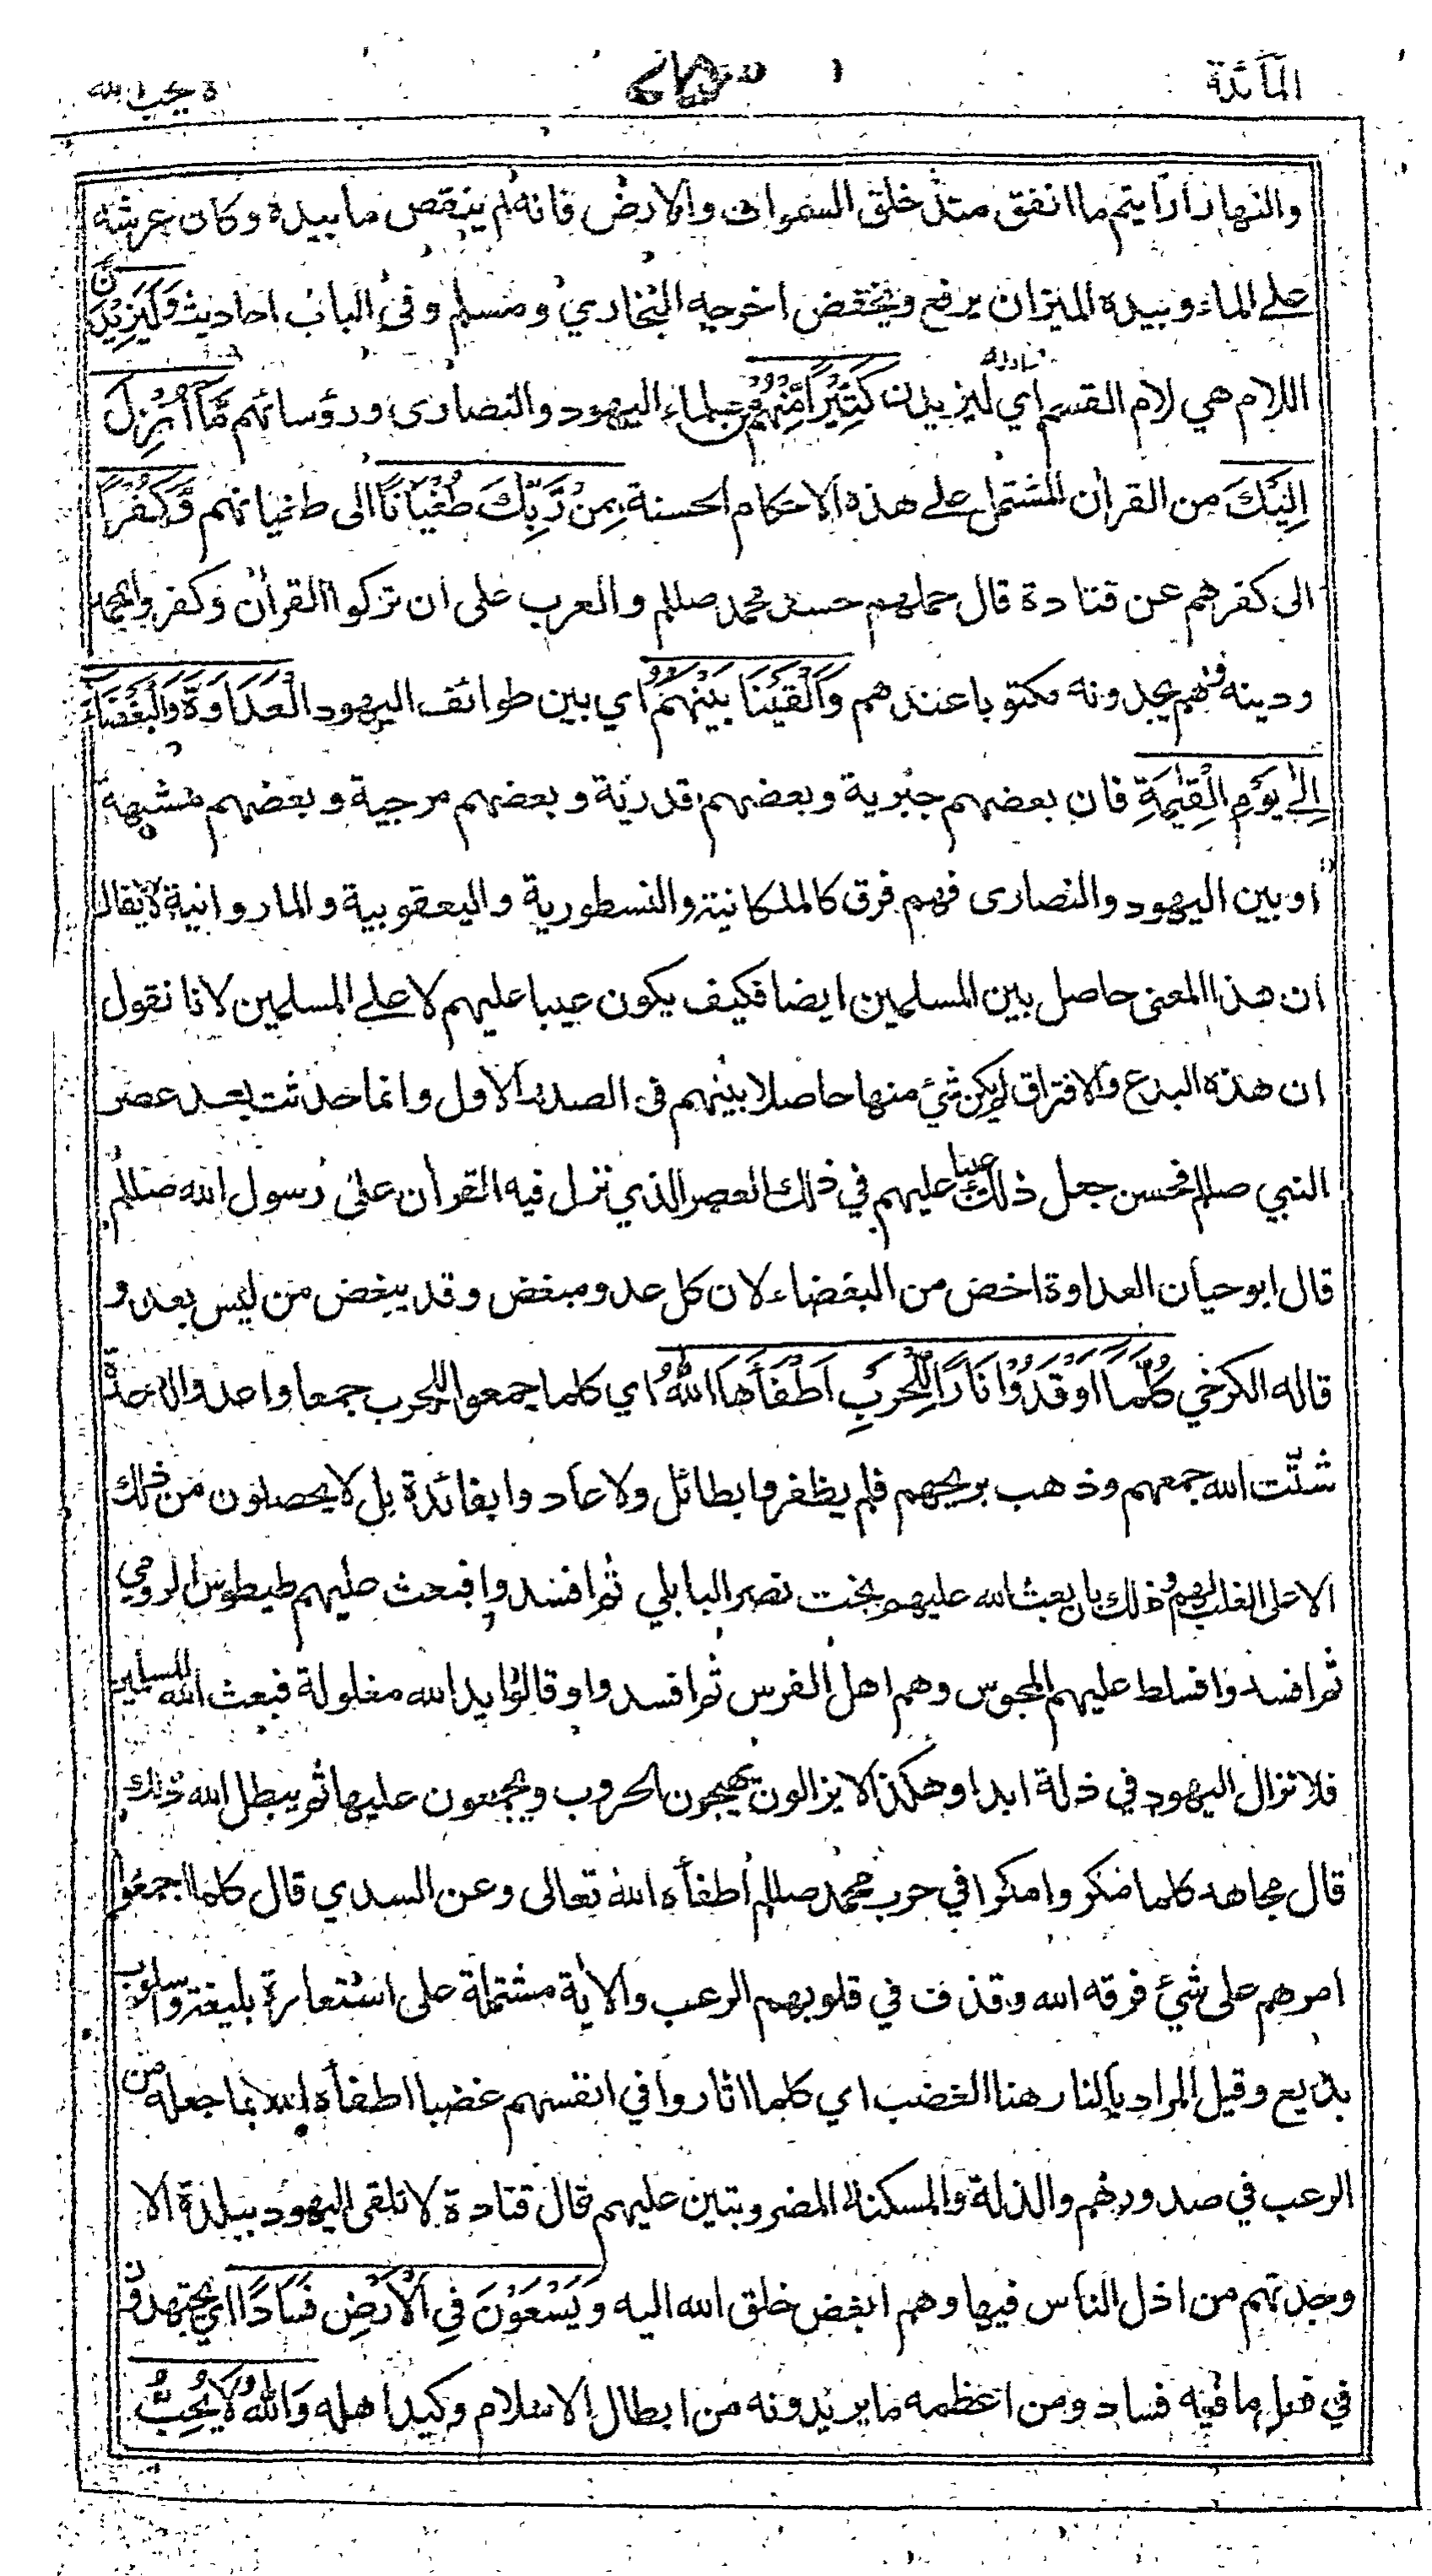 المآئدة
لا يحب الله
والنهار ارأيتم ما انفق منذ خلق السموات والارض فانه لم ينقص ما بيده وكان عرشه
على الماء وبيده الميزان يرفع ويخفض اخرجه البخاري ومسلم وفي الباب احاديث وَلَيَزِيْدَنَّ
اللام هي لام القسم اي ليزيدن كَثِيْرًا مِّنْهُمْ من علماء اليهود والنصارى ورؤسائهم مَّآ اُنْزِلَ
اِلَيْكَ من القرآن المشتمل على هذه الاحكام الحسنة مِنْ رَّبِّكَ طُغْيَانًا الى طغيانهم وَّكُفْرًا
الى كفرهم عن قتادة قال حملهم حسد محمد صللم والعرب على ان تركوا القرآن وكفروا بمحمد
ودينه وهم يجدونه مكتوبا عندهم وَاَلْقَيْنَا بَيْنَهُمُ اي بين طوائف اليهود الْعَدَاوَةَ وَالْبَغْضَاءَ
اِلٰى يَوْمِ الْقِيٰمَةِ فان بعضهم جبرية وبعضهم قدرية وبعضهم مرجية وبعضهم مشبهة
او بين اليهود والنصارى فهم فرق كالملكانية والنسطورية واليعقوبية والماروانية لا يقال
ان هذا المعنى حاصل بين المسلمين ايضا فكيف يكون عيبا عليهم لا على المسلمين لانا نقول
ان هذه البدع والافتراق لم يكن شيء منها حاصلا بينهم في الصدر الاول وانما حدثت بعد عصر
النبي صللم فحسن جعل ذلك عيبا عليهم في ذلك العصر الذي نزل فيه القرآن على رسول الله صللم
قال ابو حيان العداوة اخص من البغضاء لان كل عدو مبغض وقد يبغض من ليس بعدو
قاله الكرخي كُلَّمَا اَوْقَدُوْا نَارًا لِّلْحَرْبِ اَطْفَاَهَا اللّٰهُ اي كلما جمعوا للحرب جمعا واعدوا له عدة
شتّت الله جمعهم وذهب بريحهم فلم يظفروا بطائل ولا عادوا بفائدة بل لا يحصلون من ذلك
الا على الغلب لهم وذلك بان بعث الله عليهم بخت نصر البابلي ثم افسدوا فبعث عليهم طيطوس الرومي
ثم افسدوا فسلط عليهم المجوس وهم اهل الفرس ثم افسدوا وقالوا يد الله مغلولة فبعث الله المسلمين
فلا تزال اليهود في ذلة ابدا وهكذا لا يزالون يهيجون الحروب ويجمعون عليها ثم يبطل الله ذلك
قال مجاهد كلما مكروا مكرا في حرب محمد صللم اطفأه الله تعالى وعن السدي قال كلما اجمعوا
امرهم على شيء فرقه الله وقذف في قلوبهم الرعب والآية مشتملة على استعارة بليغة واسلوب
بديع وقيل المراد بالنار هنا الغضب اي كلما اثاروا في انفسهم غضبا اطفأه الله بما جعله من
الرعب في صدورهم والذلة والمسكنة المضروبتين عليهم قال قتادة لا تلقى اليهود ببلدة الا
وجدتهم من اذل الناس فيها وهم ابغض خلق الله اليه وَيَسْعَوْنَ فِي الْاَرْضِ فَسَادًا اي يجتهدون
في فعل ما فيه فساد ومن اعظمه ما يريدونه من ابطال الاسلام وكيد اهله وَاللّٰهُ لَا يُحِبُّ